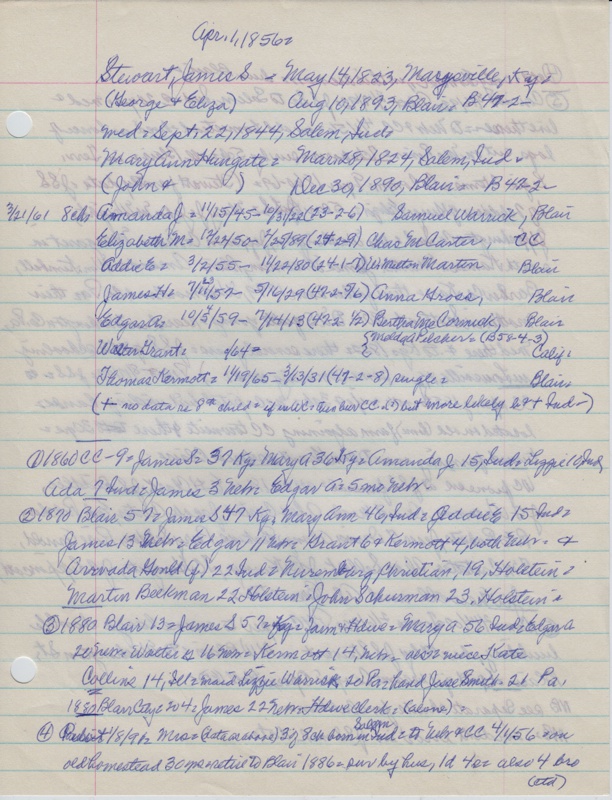 Apr. 1, 1856=
Stewart, James S - May 14, 1823, Marysville, Ky=
(George & Eliza) Aug 10, 1893, Blair= B 47-2-
wed= Sept, 22, 1844, Salem, Ind
Mary Ann Hungate= Mar 28, 1824, Salem, Ind.
(John & ) Dec 30, 1890, Blair= B 47-2-
3/21/61 8 chs Amanda J= 11/15/45- 10/31/20 (23-2-6) Samuel Warrick, Blair
Elizabeth M= 12/24/50- 7/25/89 (24-2-9) Chas McCarter CC
Addie E= 3/2/55- 11/22/80 (24-1-7) Martin Blair
James H= 5/16/29 (47-2-5/6) Anna Gross, Blair
Edgar A= 7/14/13 (47-2-1/2) Bertha McCormick, Blair
{Madga Pilcher= (B58-4-3)
Walter Grant= /64= Calif=
Thomas Kermott= 11/19/65- 3/13/31 (47-2-8) single= Blair
(+ no data re 8th child= if in WC, then our CC ch but more likely b & + Ind-)
① 1860 CC -9= James S= 37 Ky= Mary A 36 Ky= Amanda J. 15, Ind= Lizzie 10 Ind,
Ada 7 Ind= James 3 Neb= Edgar A= 5 mo Neb=
② 1870 Blair 57= James S 47 Ky, Mary Ann 46, Ind= Addie E 15 Ind=
James 13 Neb= Edgar 11 Neb= Grant 6 & Kermott 4, both Neb= &
Arvada Gould (f) 22 Ind= Nuremburg Christian, 19, Holstein=
Martin Beekman 22 Holstein= John Schurman 23, Holstein=
③ 1880 Blair 13= James S 57= Ky= farm & Hdwe= Mary A 56 Ind, Edgar A
20 Neb= Walter G 16 Neb= Kermott 14, Neb= niece Kate
Collins 14, Ill= maid Lizzie Warrick 20 Pa= hand Jesse Smith= 21 Pa.
1880 Blair City= 204= James 22 Neb= Hdwe Clerk= (above)
④ 1/8/91= Mrs= (data as above) 3 of 8 ch born in Salem Ind= to Neb & CC 4/1/56= on
old homestead 30 yrs= retire to Blair 1886= sur by hus, 1 d 4 s= also 4 bro
(ctd)